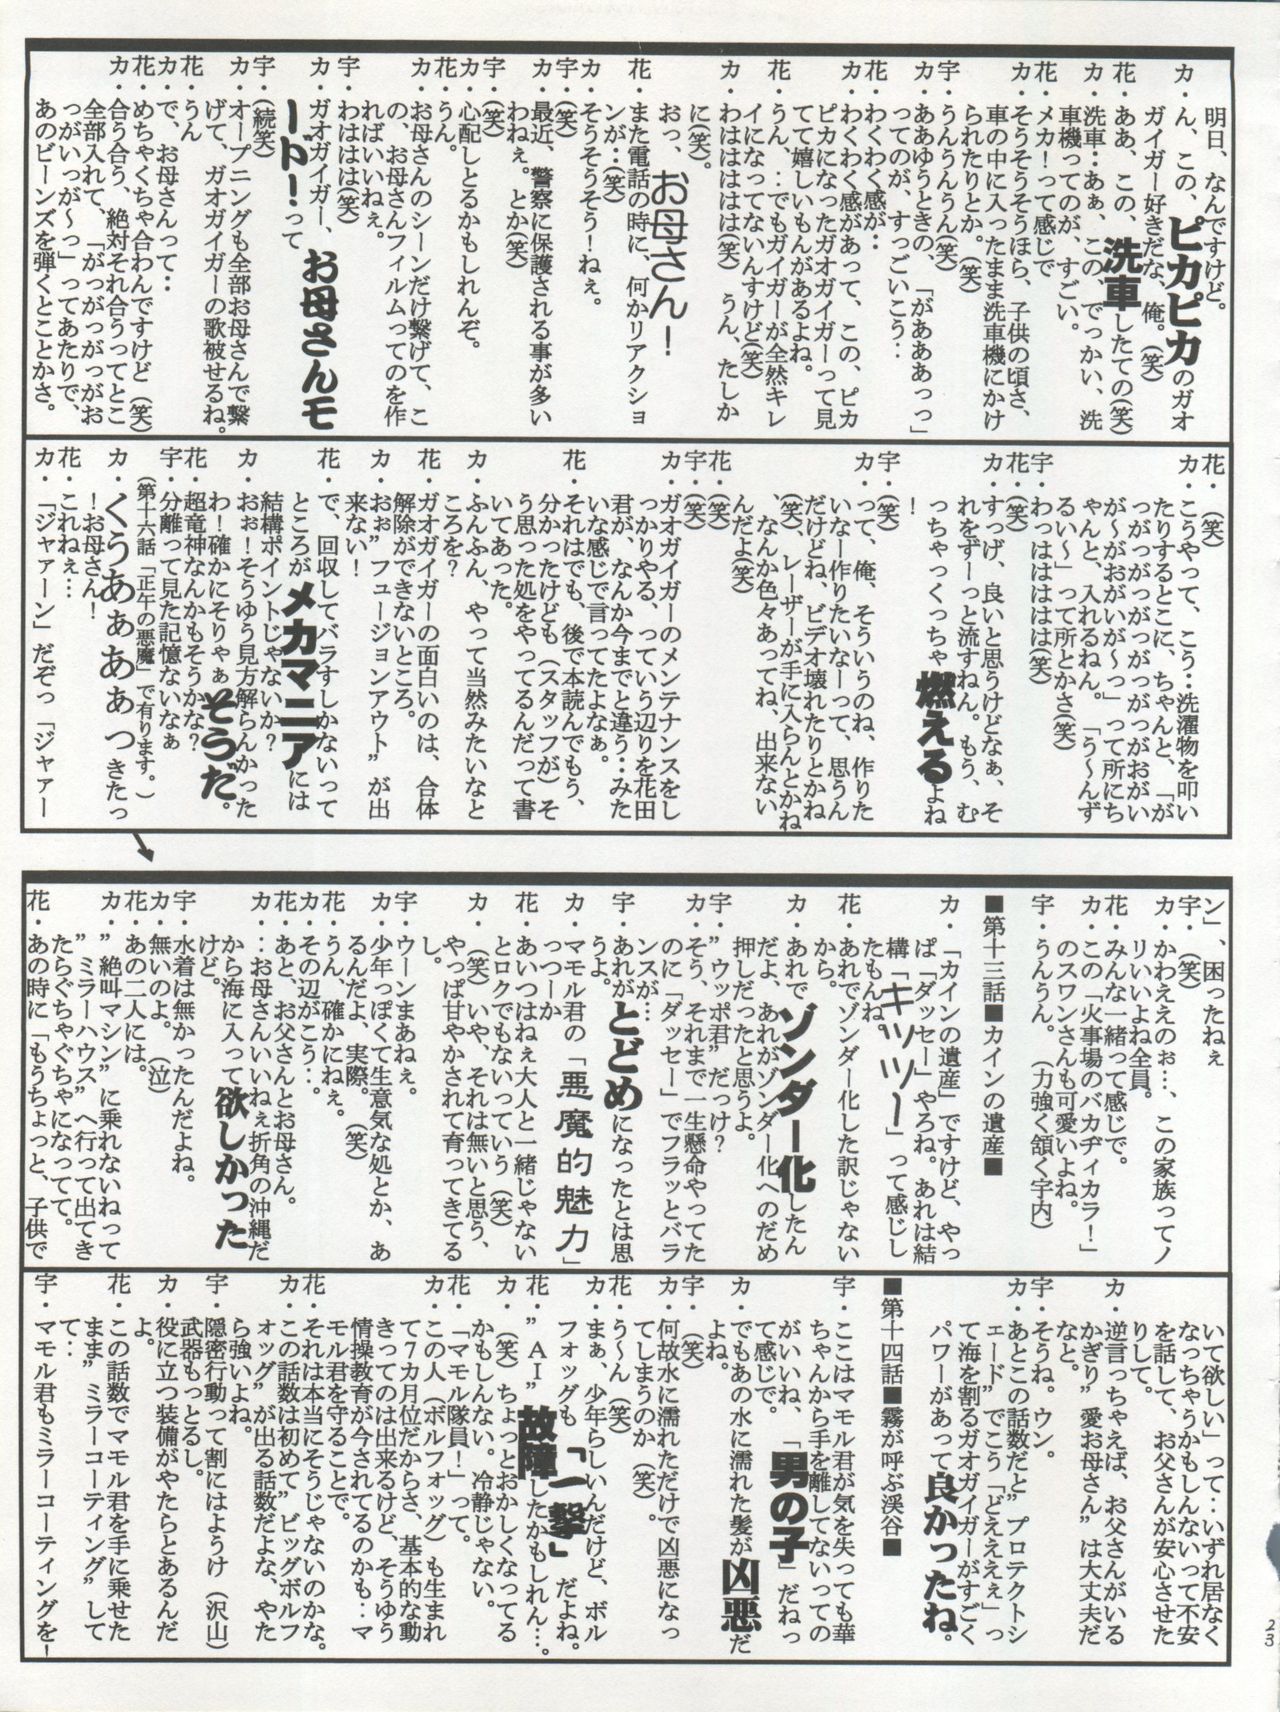 明日、なんですけど。
カ・ん、この、ピカピカのガオ
ガイガー好きだな、俺。(笑)
花・ああ、この、洗車したての(笑)
カ・洗車‥あぁ、この、でっかい、洗
車機ってのが、すごい。
花・メカ！って感じで
カ・そうそうそうほら、子供の頃さ、
車の中に入ったまま洗車機にかけ
られたりとか。(笑)
宇・うんうんうん(笑)
カ・ああゆうときの、「がああああっっ」
ってのが、すっごいこう‥
花・わくわく感が‥
カ・わくわく感があって、この、ピカ
ピカになったガオガイガーって見
てて嬉しいもんがあるよね。
花・うん、‥でもガイガーが全然キレ
イになってないんすけど(笑)
カ・わはははははは(笑) うん、たしか
に(笑)。
おっ、お母さん！
花・また電話の時に、何かリアクショ
ンが‥(笑)
カ・そうそうそう！ねぇ。
宇・(笑)
カ・最近、警察に保護される事が多い
わねぇ。とか(笑)
宇・(笑)
カ・心配しとるかもしれんぞ。
花・うん。
カ・お母さんのシーンだけ繋げて、こ
の、お母さんフィルムってのを作
ればいいねぇ。
宇・わははは(笑)
カ・ガオガイガー、お母さんモ
ード！って
宇・(続笑)
カ・オープニングも全部お母さんで繋
げて、ガオガイガーの歌被せるね。
花・うん
カ・で、お母さんって‥
花・めちゃくちゃ合わんですけど(笑)
カ・合う合う、絶対それ合うってとこ
全部入れて、「がっがっがっがっがお
っがいっが～っ」ってあたりで、
あのビーンズを弾くとことかさ。
花・(笑)
カ・こうやって、こう‥洗濯物を叩い
たりするとこに、ちゃんと、「が
っがっがっがっがっがっがおがい
が～がおがいが～っ」って所にち
ゃんと、入れるねん。「う～んず
るい～」って所とかさ(笑)
宇・わっはははははは(笑)
花・(笑)
カ・すっげ、良いと思うけどなぁ、そ
れをずーっと流すねん。もう、む
っちゃっくっちゃ燃えるよね
！
宇・(笑)
カ・って、俺、そういうのね、作りた
いなー作りたいなーって、思うん
だけどね、ビデオ壊れたりとかね
(笑)、レーザーが手に入らんとかね
、なんか色々あってね、出来ない
んだよ(笑)
花・(笑)
宇・(笑)
カ・ガオガイガーのメンテナンスをし
っかりやる、っていう辺りを花田
君が、なんか今までと違う‥みた
いな感じで言ってたよなぁ。
花・それはでも、後で本読んでもう、
分かったけども(スタッフが)そ
う思った処をやってるんだって書
いてあった。
カ・ふんふん、やって当然みたいなと
ころを？
花・ガオガイガーの面白いのは、合体
解除ができないところ。
カ・おぉ”フュージョンアウト”が出
来ない！
花・で、回収してバラすしかないって
ところがメカマニアには
結構ポイントじゃないか？
カ・おぉ！そうゆう見方解らんかった
わ！確かにそりゃぁそうだ。
花・超竜神なんかもそうかな？
宇・分離って見た記憶ないなぁ
(第十六話「正午の悪魔」で有ります。)
カ・くうあぁああぁっきたっ
！お母さん！
花・これねぇ…
カ・「ジャァーン」だぞっ「ジャァー
ン」、困ったねぇ
宇・(笑)
カ・かわええのぉ…、この家族ってノ
リいいよね全員。
花・みんな一緒って感じで。
カ・この「火事場のバカヂィカラ！」
のスワンさんも可愛いよね。
宇・うんうん。(力強く頷く宇内)
■第十三話■カインの遺産■
カ・「カインの遺産」ですけど、やっ
ぱ「ダッセー」やろね。あれは結
構「キッツー」って感じし
たもんね。
花・あれでゾンダー化した訳じゃない
から。
カ・あれでゾンダー化したん
だよ、あれがゾンダー化へのだめ
押しだったと思うよ。
宇・”ウッポ君”だっけ？
カ・そう、それまで一生懸命やってた
のに「ダッセー」でフラッとバラ
ンスが…
宇・あれがとどめになったとは思
うよ。
カ・マモル君の「悪魔的魅力」
っつーか
花・あいつはねぇ大人と一緒じゃない
とロクでもないっていう(笑)
カ・(笑)いや、それは無いと思う、
やっぱ甘やかされて育ってきてる
し。
宇・ウーンまあねぇ。
カ・少年っぽくて生意気な処とか、あ
るんだよ、実際。(笑)
花・うん、確かにねぇ。
カ・その辺がこう‥
花・あと、お父さんとお母さん。
カ・‥お母さんいいねぇ折角の沖縄だ
から海に入って欲しかった
けど。
宇・水着は無かったんだよね。
カ・無いのよ。(泣)
花・あの二人には。
カ・”絶叫マシン”に乗れないねって
”ミラーハウス”へ行って出てき
たらぐちゃぐちゃになってて。
花・あの時に「もうちょっと、子供で
いて欲しい」って‥いずれ居なく
なっちゃうかもしんないって不安
を話して、お父さんが安心させた
りして。
カ・逆言っちゃえば、お父さんがいる
かぎり”愛お母さん”は大丈夫だ
なと。
宇・そうね。ウン。
カ・あとこの話数だと”プロテクトシ
ェード”でこう「どえええぇ」っ
て海を割るガオガイガーがすごく
パワーがあって良かったね。
■第十四話■霧が呼ぶ渓谷■
宇・ここはマモル君が気を失っても華
ちゃんから手を離してないっての
がいいね、「男の子」だねっ
て感じで。
カ・でもあの水に濡れた髪が凶悪だ
よね。
宇・(笑)
カ・何故水に濡れただけで凶悪になっ
てしまうのか(笑)。
花・う～ん(笑)
カ・まぁ、少年らしいんだけど、ボル
フォッグも「一撃」だよね。
花・”AI”故障したかもしれん…。
カ・(笑)ちょっとおかしくなってる
かもしんない。冷静じゃない。
花・「マモル隊員！」って。
カ・この人(ボルフォッグ)も生まれ
て7カ月位だからさ、基本的な動
きってのは出来るけど、そうゆう
情操教育が今されてるのかも‥マ
モル君を守ることで。
花・それは本当にそうじゃないのかな。
カ・この話数は初めて”ビッグボルフ
ォッグ”が出る話数だよな、やた
ら強いよね。
宇・隠密行動って割にはようけ(沢山)
武器もっとるし。
カ・役に立つ装備がやたらとあるんだ
よ。
花・この話数でマモル君を手に乗せた
まま”ミラーコーティング”して
て‥
宇・マモル君もミラーコーティングを！
23